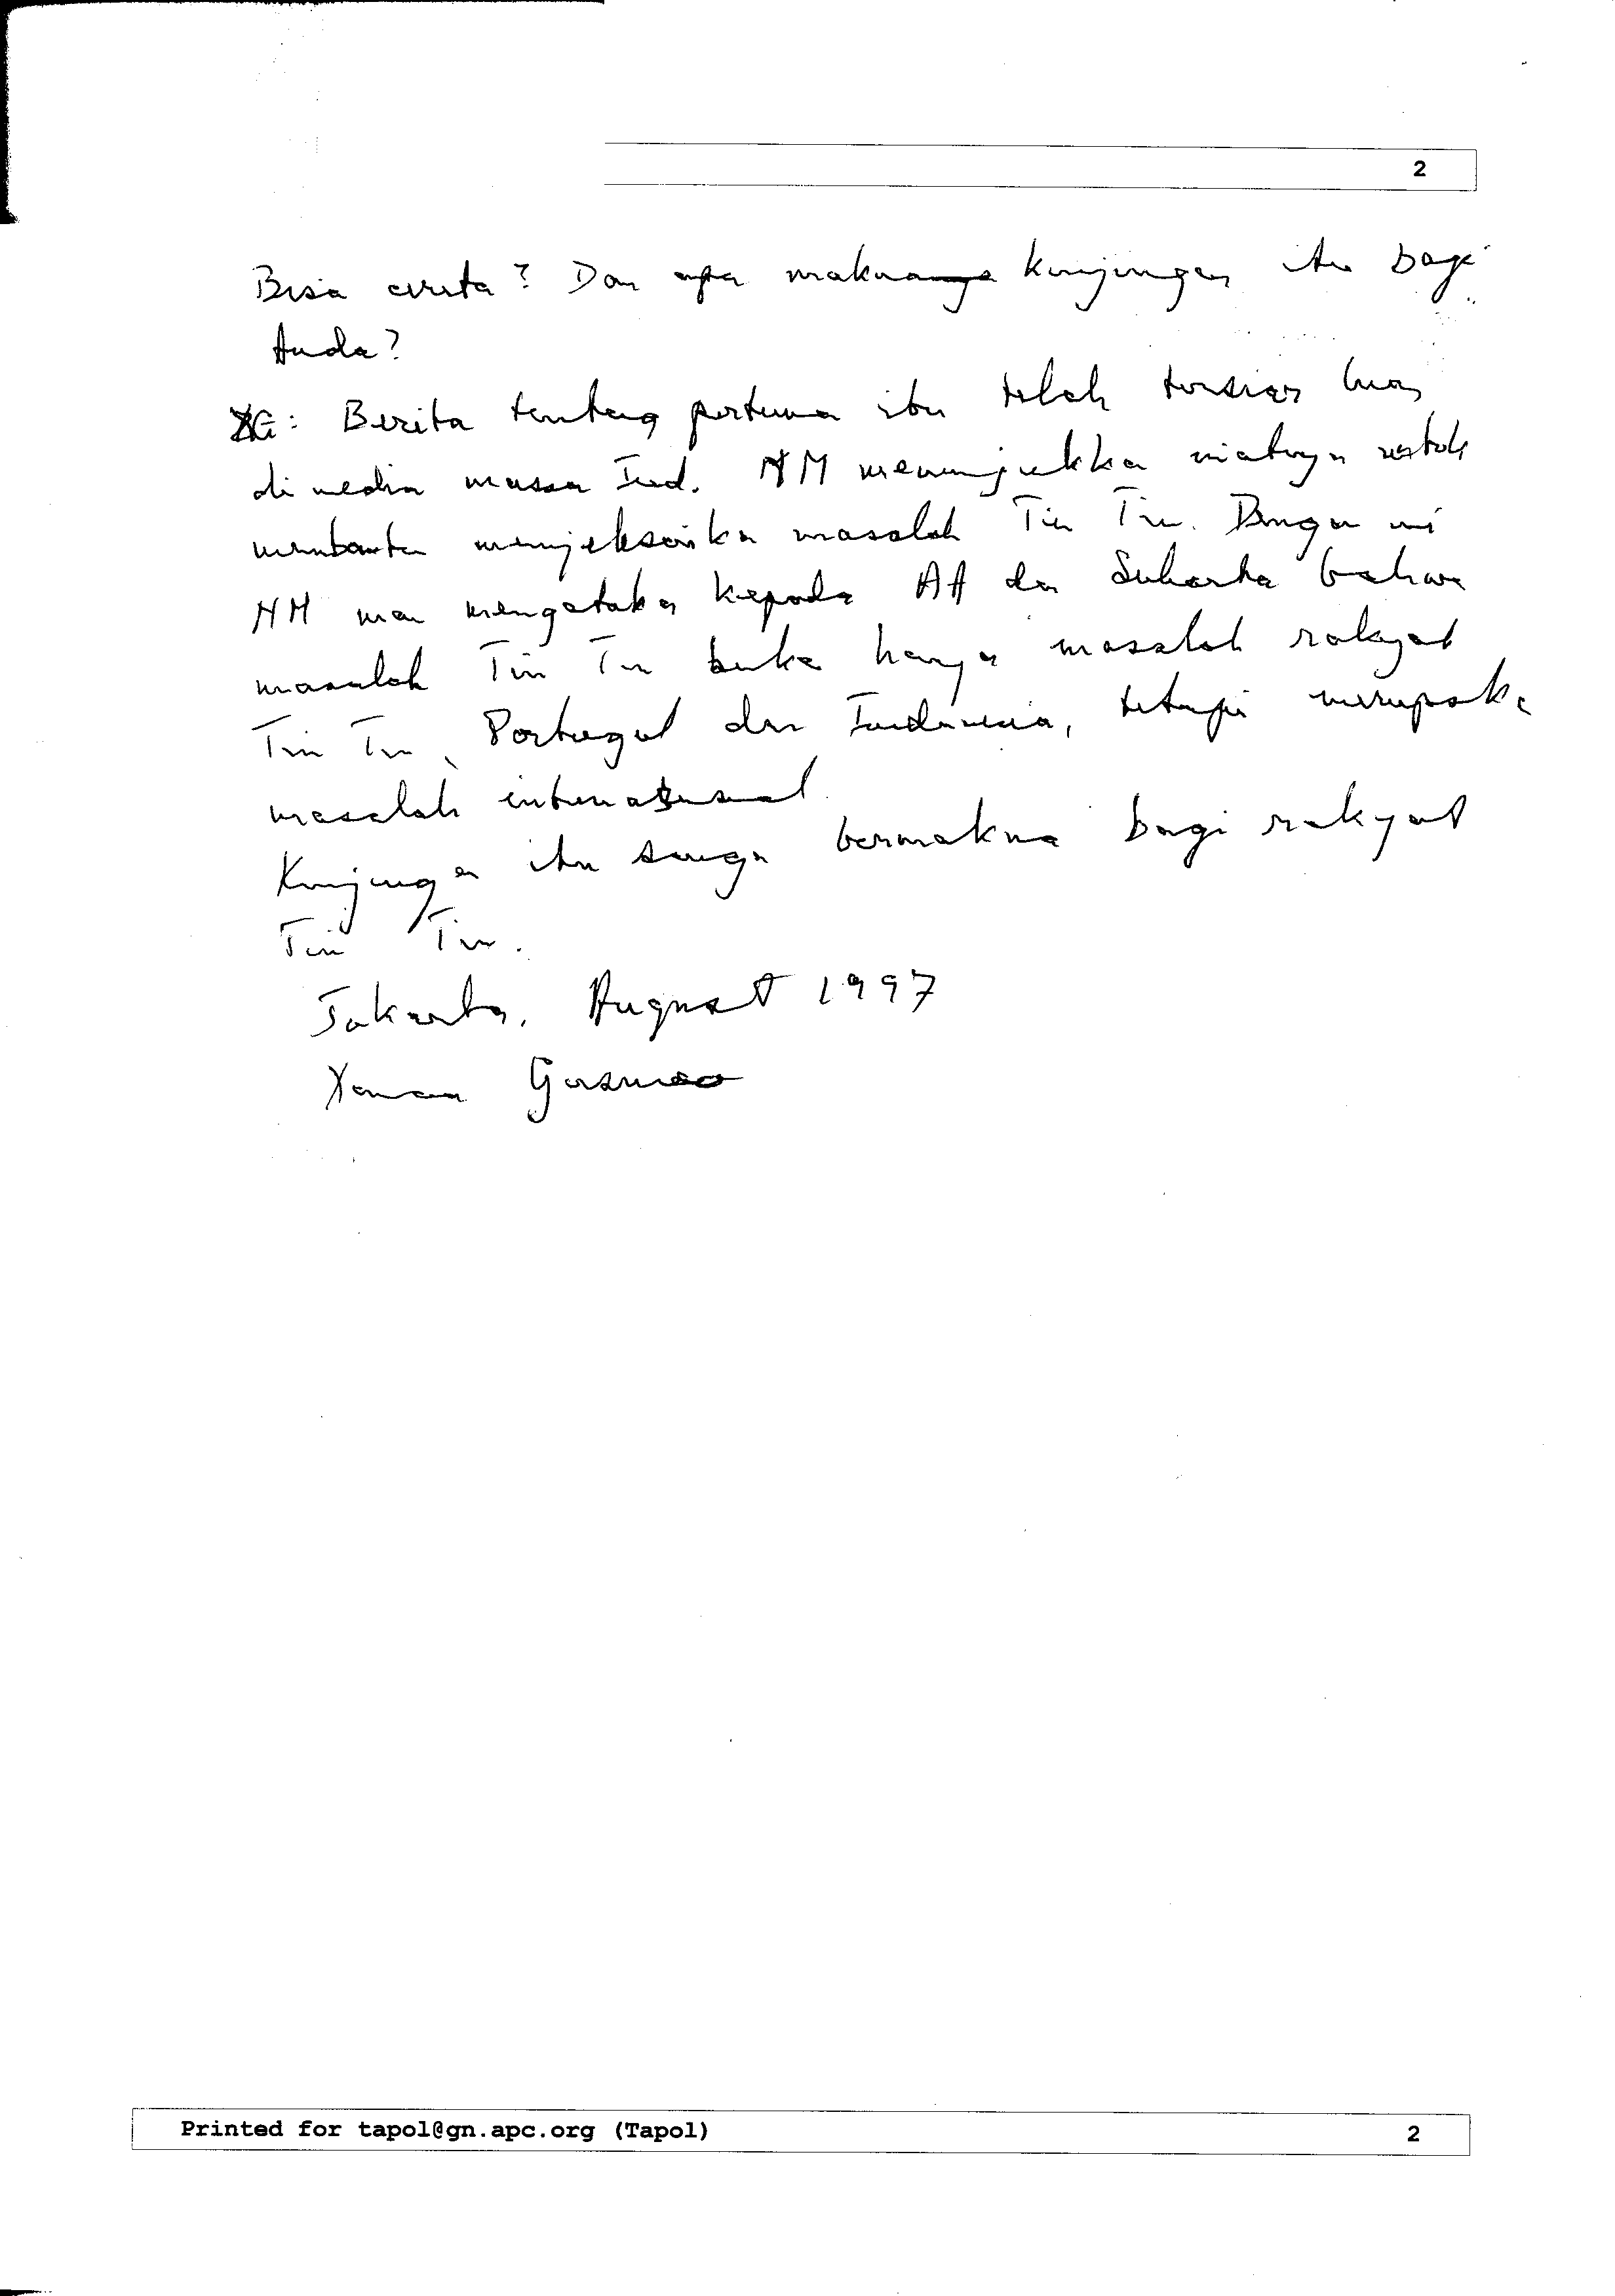 2
Bisa cerita? Dan apa makna kunjungan itu bagi
Anda?
XG: Berita tentang pertemuan itu telah tersiar luas
di media massa Ind. NM menunjukkan niatnya untuk
membantu menyelesaikan masalah Tim Tim. Dengan ini
NM mau mengatakan kepada AA dan Suharto bahwa
masalah Tim Tim bukan hanya masalah rakyat
Tim Tim, Portugal dan Indonesia, tetapi merupakan
masalah internasional.
Kunjungan itu sangat bermakna bagi rakyat
Tim Tim.
Jakarta, August 1997
Xanana Gusmao
Printed for tapol@gn.apc.org (Tapol) 2